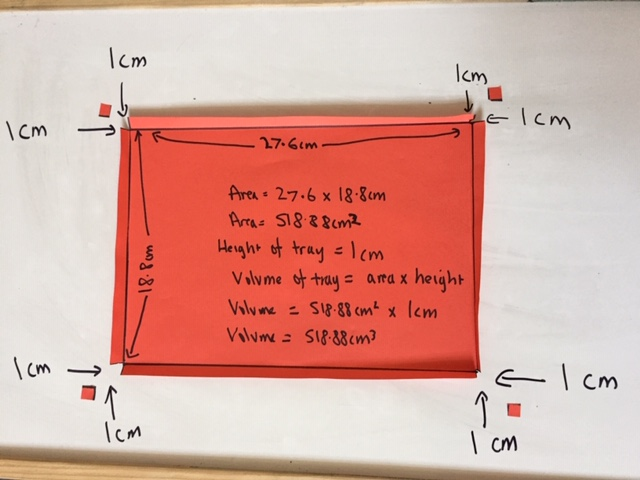 1cm
1cm
1cm
1cm
27.6cm
18.8cm
Area = 27.6 x 18.8cm
Area = 518.88cm²
Height of tray = 1cm
Volume of tray = area x height
Volume = 518.88cm² x 1cm
Volume = 518.88cm³
1cm
1cm
1cm
1cm